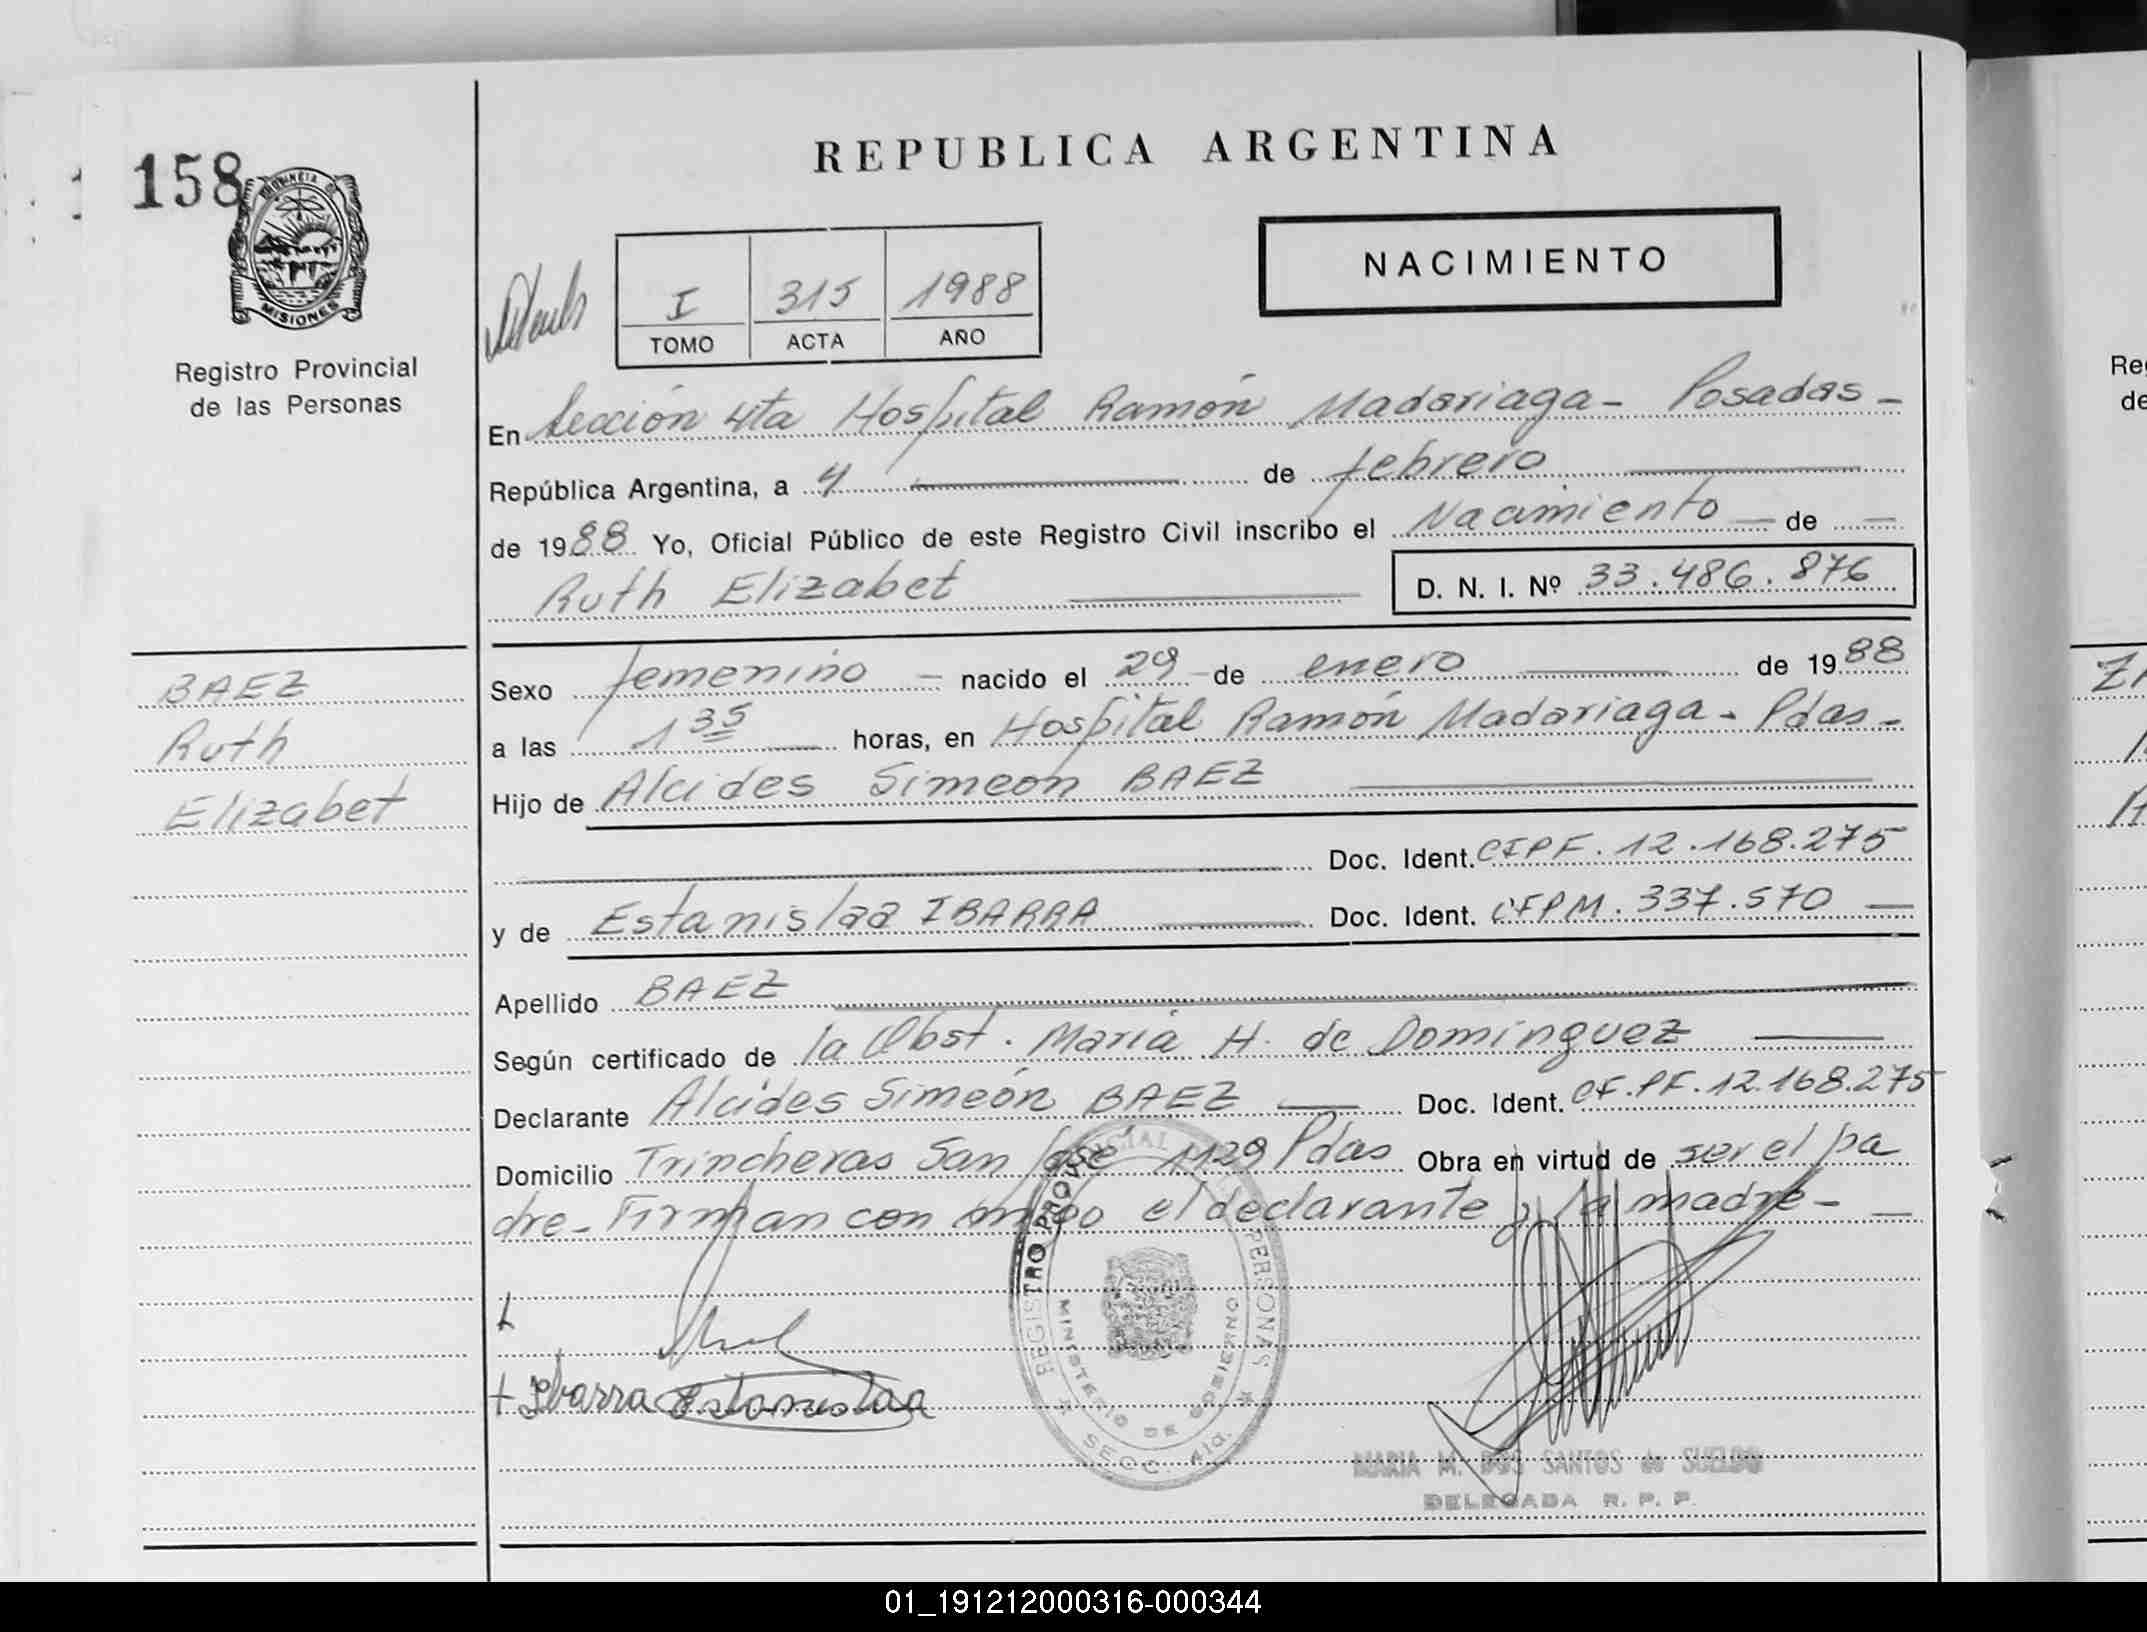 158
PROVINCIA DE
MISIONES
Registro Provincial
de las Personas
BAEZ
Ruth
Elizabet
REPUBLICA ARGENTINA
I 315 1988
TOMO ACTA AÑO
NACIMIENTO
En Sección 4ta Hospital Ramón Madariaga - Posadas -
República Argentina, a 4 de febrero
de 1988 Yo, Oficial Público de este Registro Civil inscribo el Nacimiento de
Ruth Elizabet D. N. I. Nº 33.486.876
Sexo femenino nacido el 29 de enero de 1988
a las 1 35 horas, en Hospital Ramón Madariaga - Pdas -
Hijo de Alcides Simeón BAEZ
Doc. Ident. CIPF. 12.168.275
y de Estanislaa IBARRA Doc. Ident. CIPM. 337.570
Apellido BAEZ
Según certificado de la Obst. Maria H. de Dominguez
Declarante Alcides Simeón BAEZ Doc. Ident. CI.PF. 12.168.275
Domicilio Trincheras San José 1129 Pdas Obra en virtud de ser el pa
dre - Firman con migo el declarante y la madre -
+ Ibarra Estanislaa
REGISTRO PROVINCIAL PERSONAS
MINISTERIO DE GOBIERNO
SECC. 4ta.
MARIA M. DOS SANTOS de SUELDO
DELEGADA R. P. P.
01_191212000316-000344